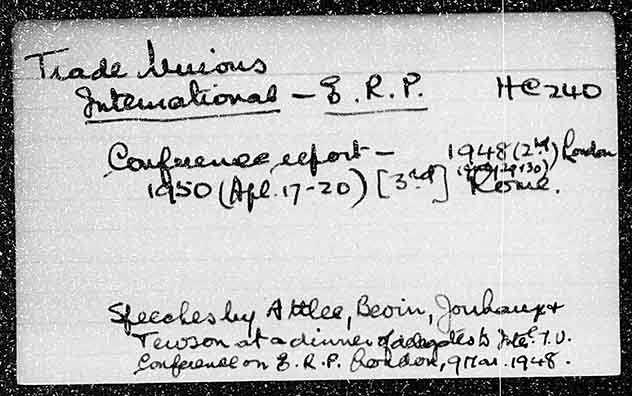 Trade Unions
International – E.R.P. HC 240
Conference report – 1948 (2nd) London
1950 (Apl. 17-20) [3rd] Rome.
Speeches by Attlee, Bevin, Jouhaux &
Tewson at a dinner of delegates to Intl. T.U.
Conference on E.R.P. London, 9 Mar. 1948.